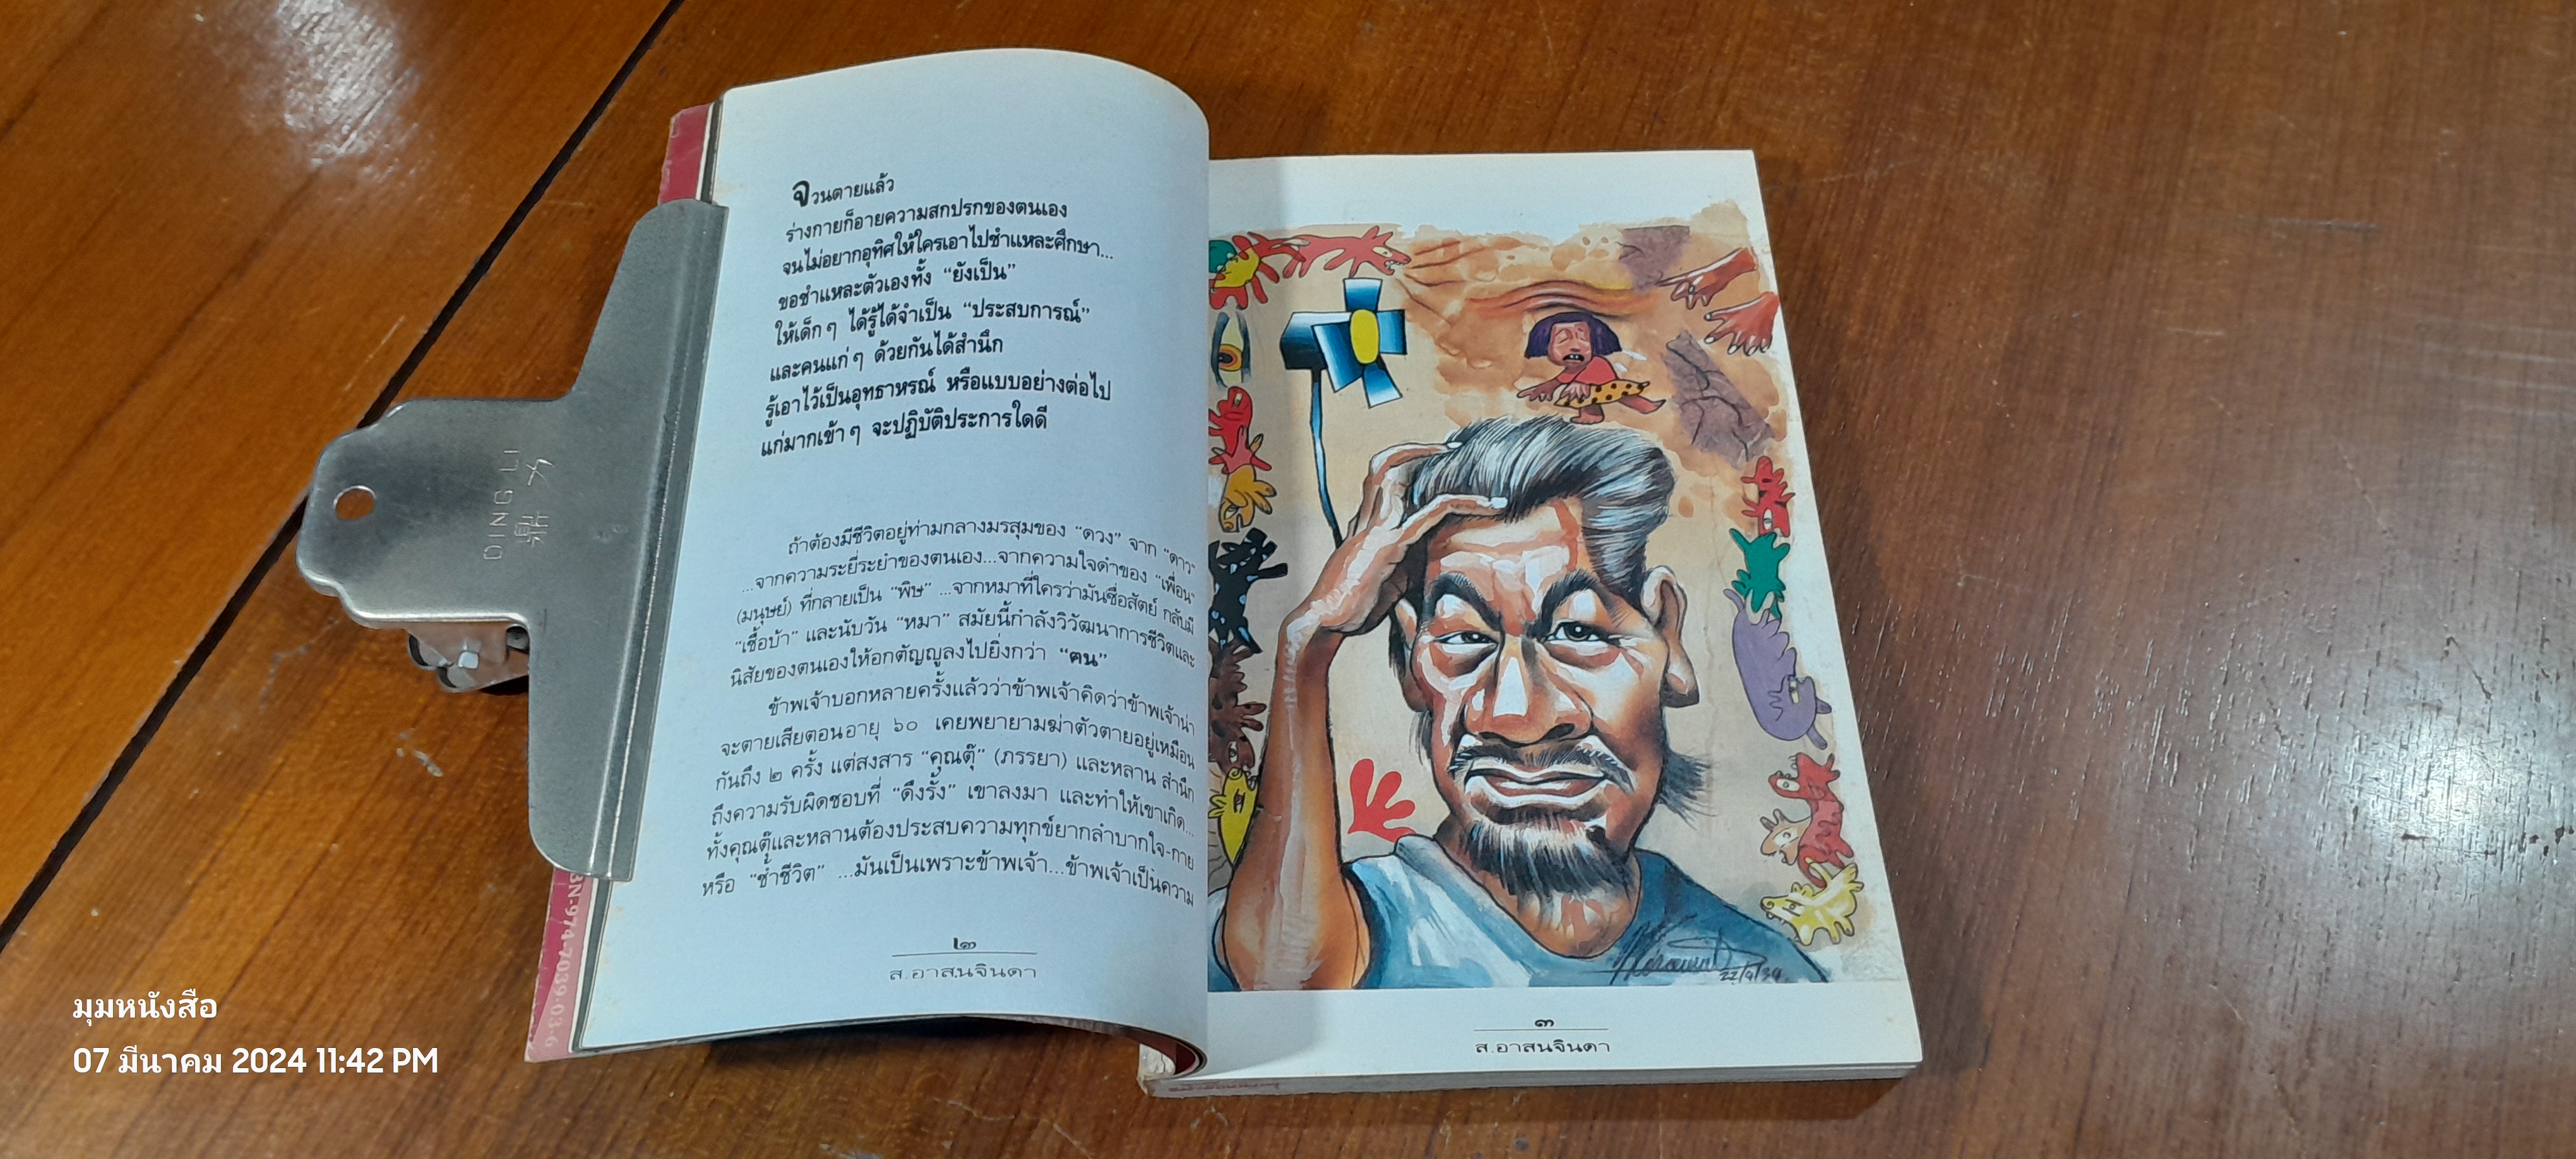 จวนตายแล้ว
ร่างกายก็อายความสกปรกของตนเอง
จนไม่อยากอุทิศให้ใครเอาไปชำแหละศึกษา...
ขอชำแหละตัวเองทั้ง “ยังเป็น”
ให้เด็ก ๆ ได้รู้ได้จำเป็น “ประสบการณ์”
และคนแก่ ๆ ด้วยกันได้สำนึก
รู้เอาไว้เป็นอุทธาหรณ์ หรือแบบอย่างต่อไป
แก่มากเข้า ๆ จะปฏิบัติประการใดดี
ถ้าต้องมีชีวิตอยู่ท่ามกลางมรสุมของ “ดวง” จาก “ดาว”
...จากความระยี่ระยำของตนเอง...จากความใจดำของ “เพื่อน”
(มนุษย์) ที่กลายเป็น “พิษ” ...จากหมาที่ใครว่ามันซื่อสัตย์ กลับมี
“เชื้อบ้า” และนับวัน “หมา” สมัยนี้กำลังวิวัฒนาการชีวิตและ
นิสัยของตนเองให้อกตัญญูลงไปยิ่งกว่า “ฅน”
ข้าพเจ้าบอกหลายครั้งแล้วว่าข้าพเจ้าคิดว่าข้าพเจ้าน่า
จะตายเสียตอนอายุ ๖๐ เคยพยายามฆ่าตัวตายอยู่เหมือน
กันถึง ๒ ครั้ง แต่สงสาร “คุณตุ๊” (ภรรยา) และหลาน สำนึก
ถึงความรับผิดชอบที่ “ดึงรั้ง” เขาลงมา และทำให้เขาเกิด...
ทั้งคุณตุ๊และหลานต้องประสบความทุกข์ยากลำบากใจ-กาย
หรือ “ช้ำชีวิต” ...มันเป็นเพราะข้าพเจ้า...ข้าพเจ้าเป็นความ
๒
ส.อาสนจินดา
22/9/39
๓
ส.อาสนจินดา
BN-974-7039-03-6
DING LI
鼎力
มุมหนังสือ
07 มีนาคม 2024 11:42 PM